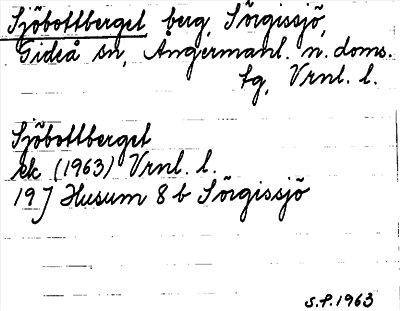 Sjöbottberget berg, Sörgissjö,
Gideå sn, Ångermanl. n. doms.
tg, Vrnl. l.
Sjöbottberget
ek (1963) Vrnl. l.
19 J Husum 8 b Sörgissjö
S.P. 1963